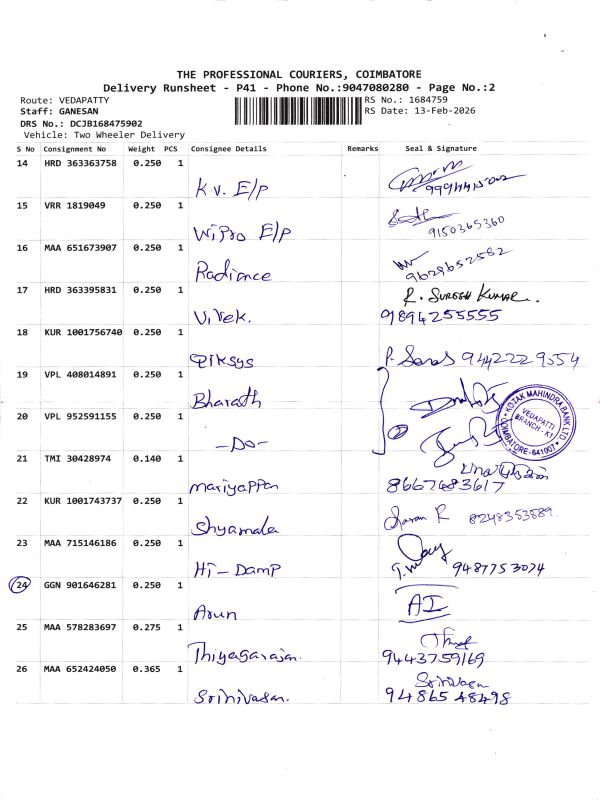 THE PROFESSIONAL COURIERS, COIMBATORE
Delivery Runsheet - P41 - Phone No.:9047080280 - Page No.:2
Route: VEDAPATTY
RS No.: 1684759
Staff: GANESAN
RS Date: 13-Feb-2026
DRS No.: DCJB168475902
Vehicle: Two Wheeler Delivery
S No Consignment No Weight PCS Consignee Details Remarks Seal & Signature
14 HRD 363363758 0.250 1
K.V. E/P
15 VRR 1819049 0.250 1
Wipro E/P 9150365360
16 MAA 651673907 0.250 1
Radiance 9629652582
17 HRD 363395831 0.250 1 R. SURESH KUMAR..
Vivek. 9894255555
18 KUR 1001756740 0.250 1
19 VPL 408014891 0.250 1
Bharath
20 VPL 952591155 0.250 1
-Do-
KOTAK MAHINDRA BANK LTD
VEDAPATTI
BRANCH - K1
COIMBATORE-641007
21 TMI 30428974 0.140 1
Mariyappan 8667683617
22 KUR 1001743737 0.250 1
Shyamala 8248353589
23 MAA 715146186 0.250 1
Hi-Damp 9487753074
24 GGN 901646281 0.250 1
Arun AI
25 MAA 578283697 0.275 1
Thiyagarajan. 9443759169
26 MAA 652424050 0.365 1 Srinivasan
Srinivasan. 9486548498